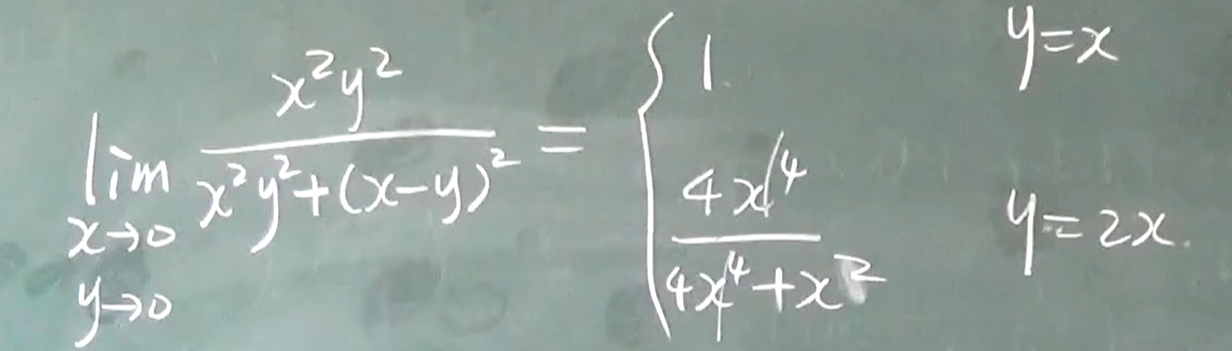 lim x→0 y→0 x²y² / (x²y²+(x-y)²) = { 1. y=x
4x⁴ / (4x⁴+x²) y=2x.